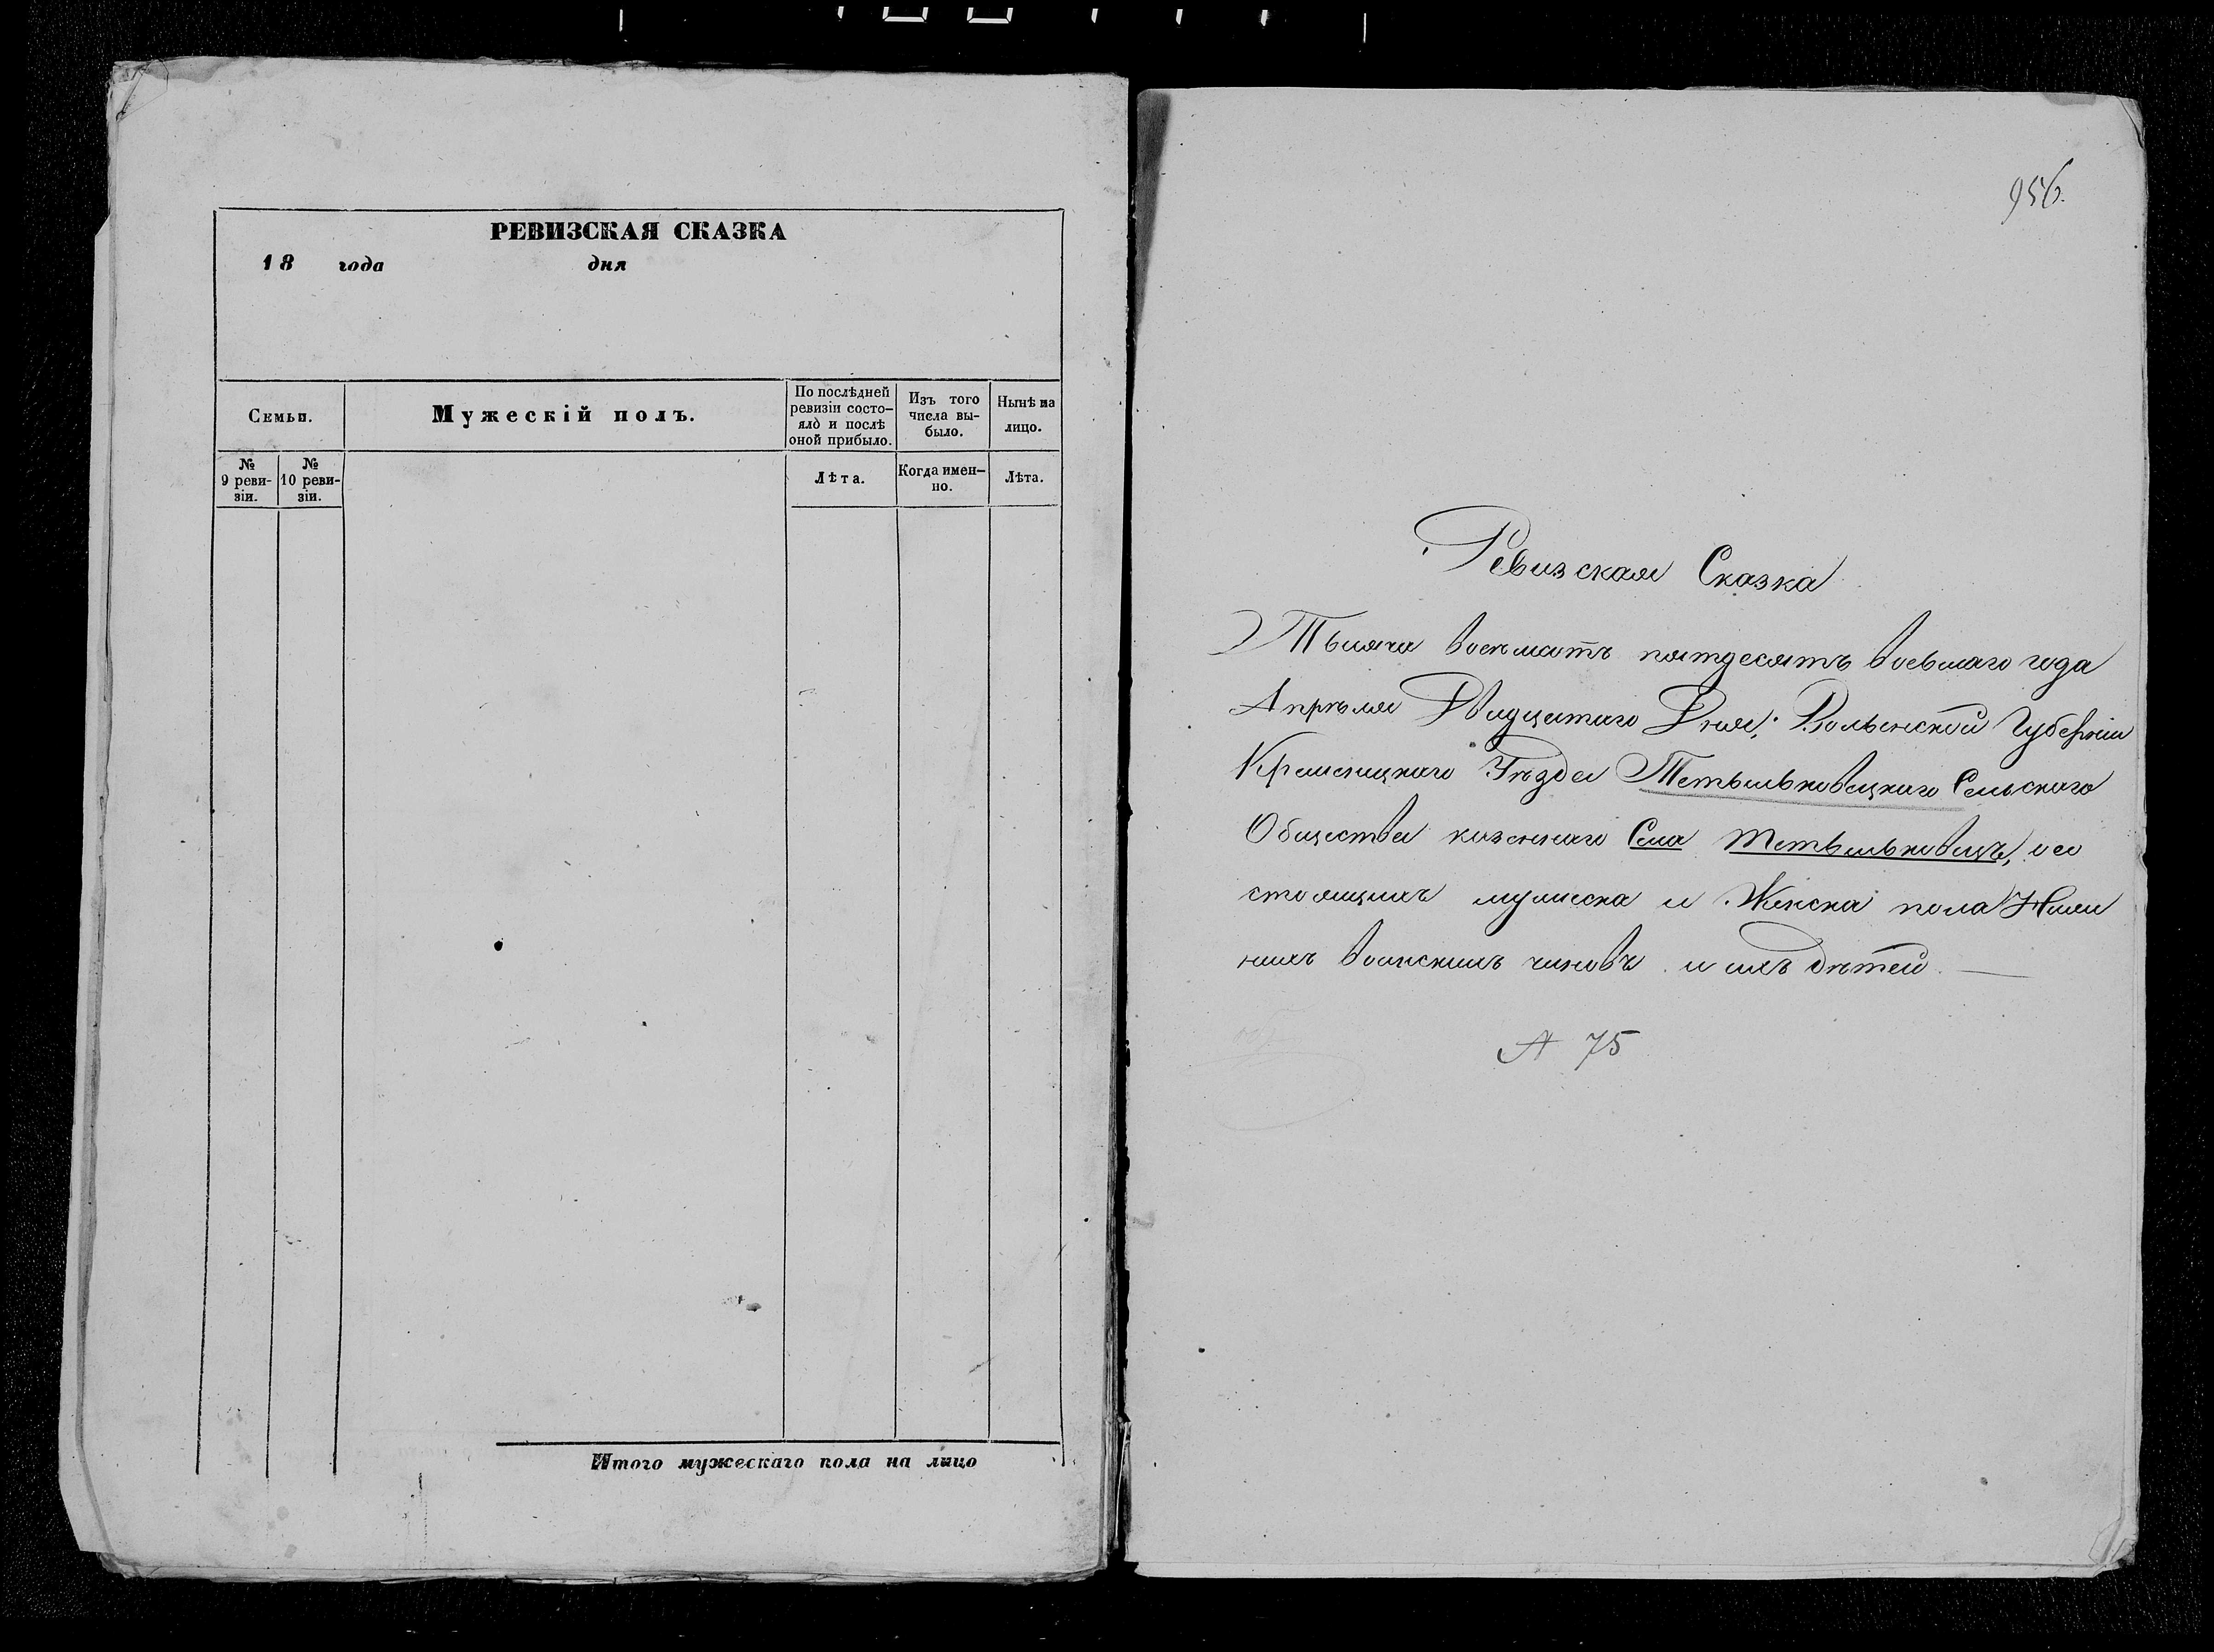 РЕВИЗСКАЯ СКАЗКА
18 года дня
Семьи.
Мужескій полъ.
По послѣдней
ревизіи состо-
яло и послѣ
оной прибыло.
Изъ того
числа вы-
было.
Нынѣ на
лицо.
№
9 реви-
зіи.
№
10 реви-
зіи.
Лѣта.
Когда имен-
но.
Лѣта.
Итого мужескаго пола на лицо
956.
Ревизская Сказка
Тысяча восемьсотъ пятдесятъ восьмаго года
Апрѣля Двадцатаго Дня; Волынской Губерніи
Кременецкаго Уѣзда Тетыльковецкаго Сельскаго
Общества казеннаго Села Тетыльковецъ, о со
стоящихъ мужеска и Женска пола Ниж
нихъ воинскихъ чиновъ и ихъ дѣтей. —
А 75